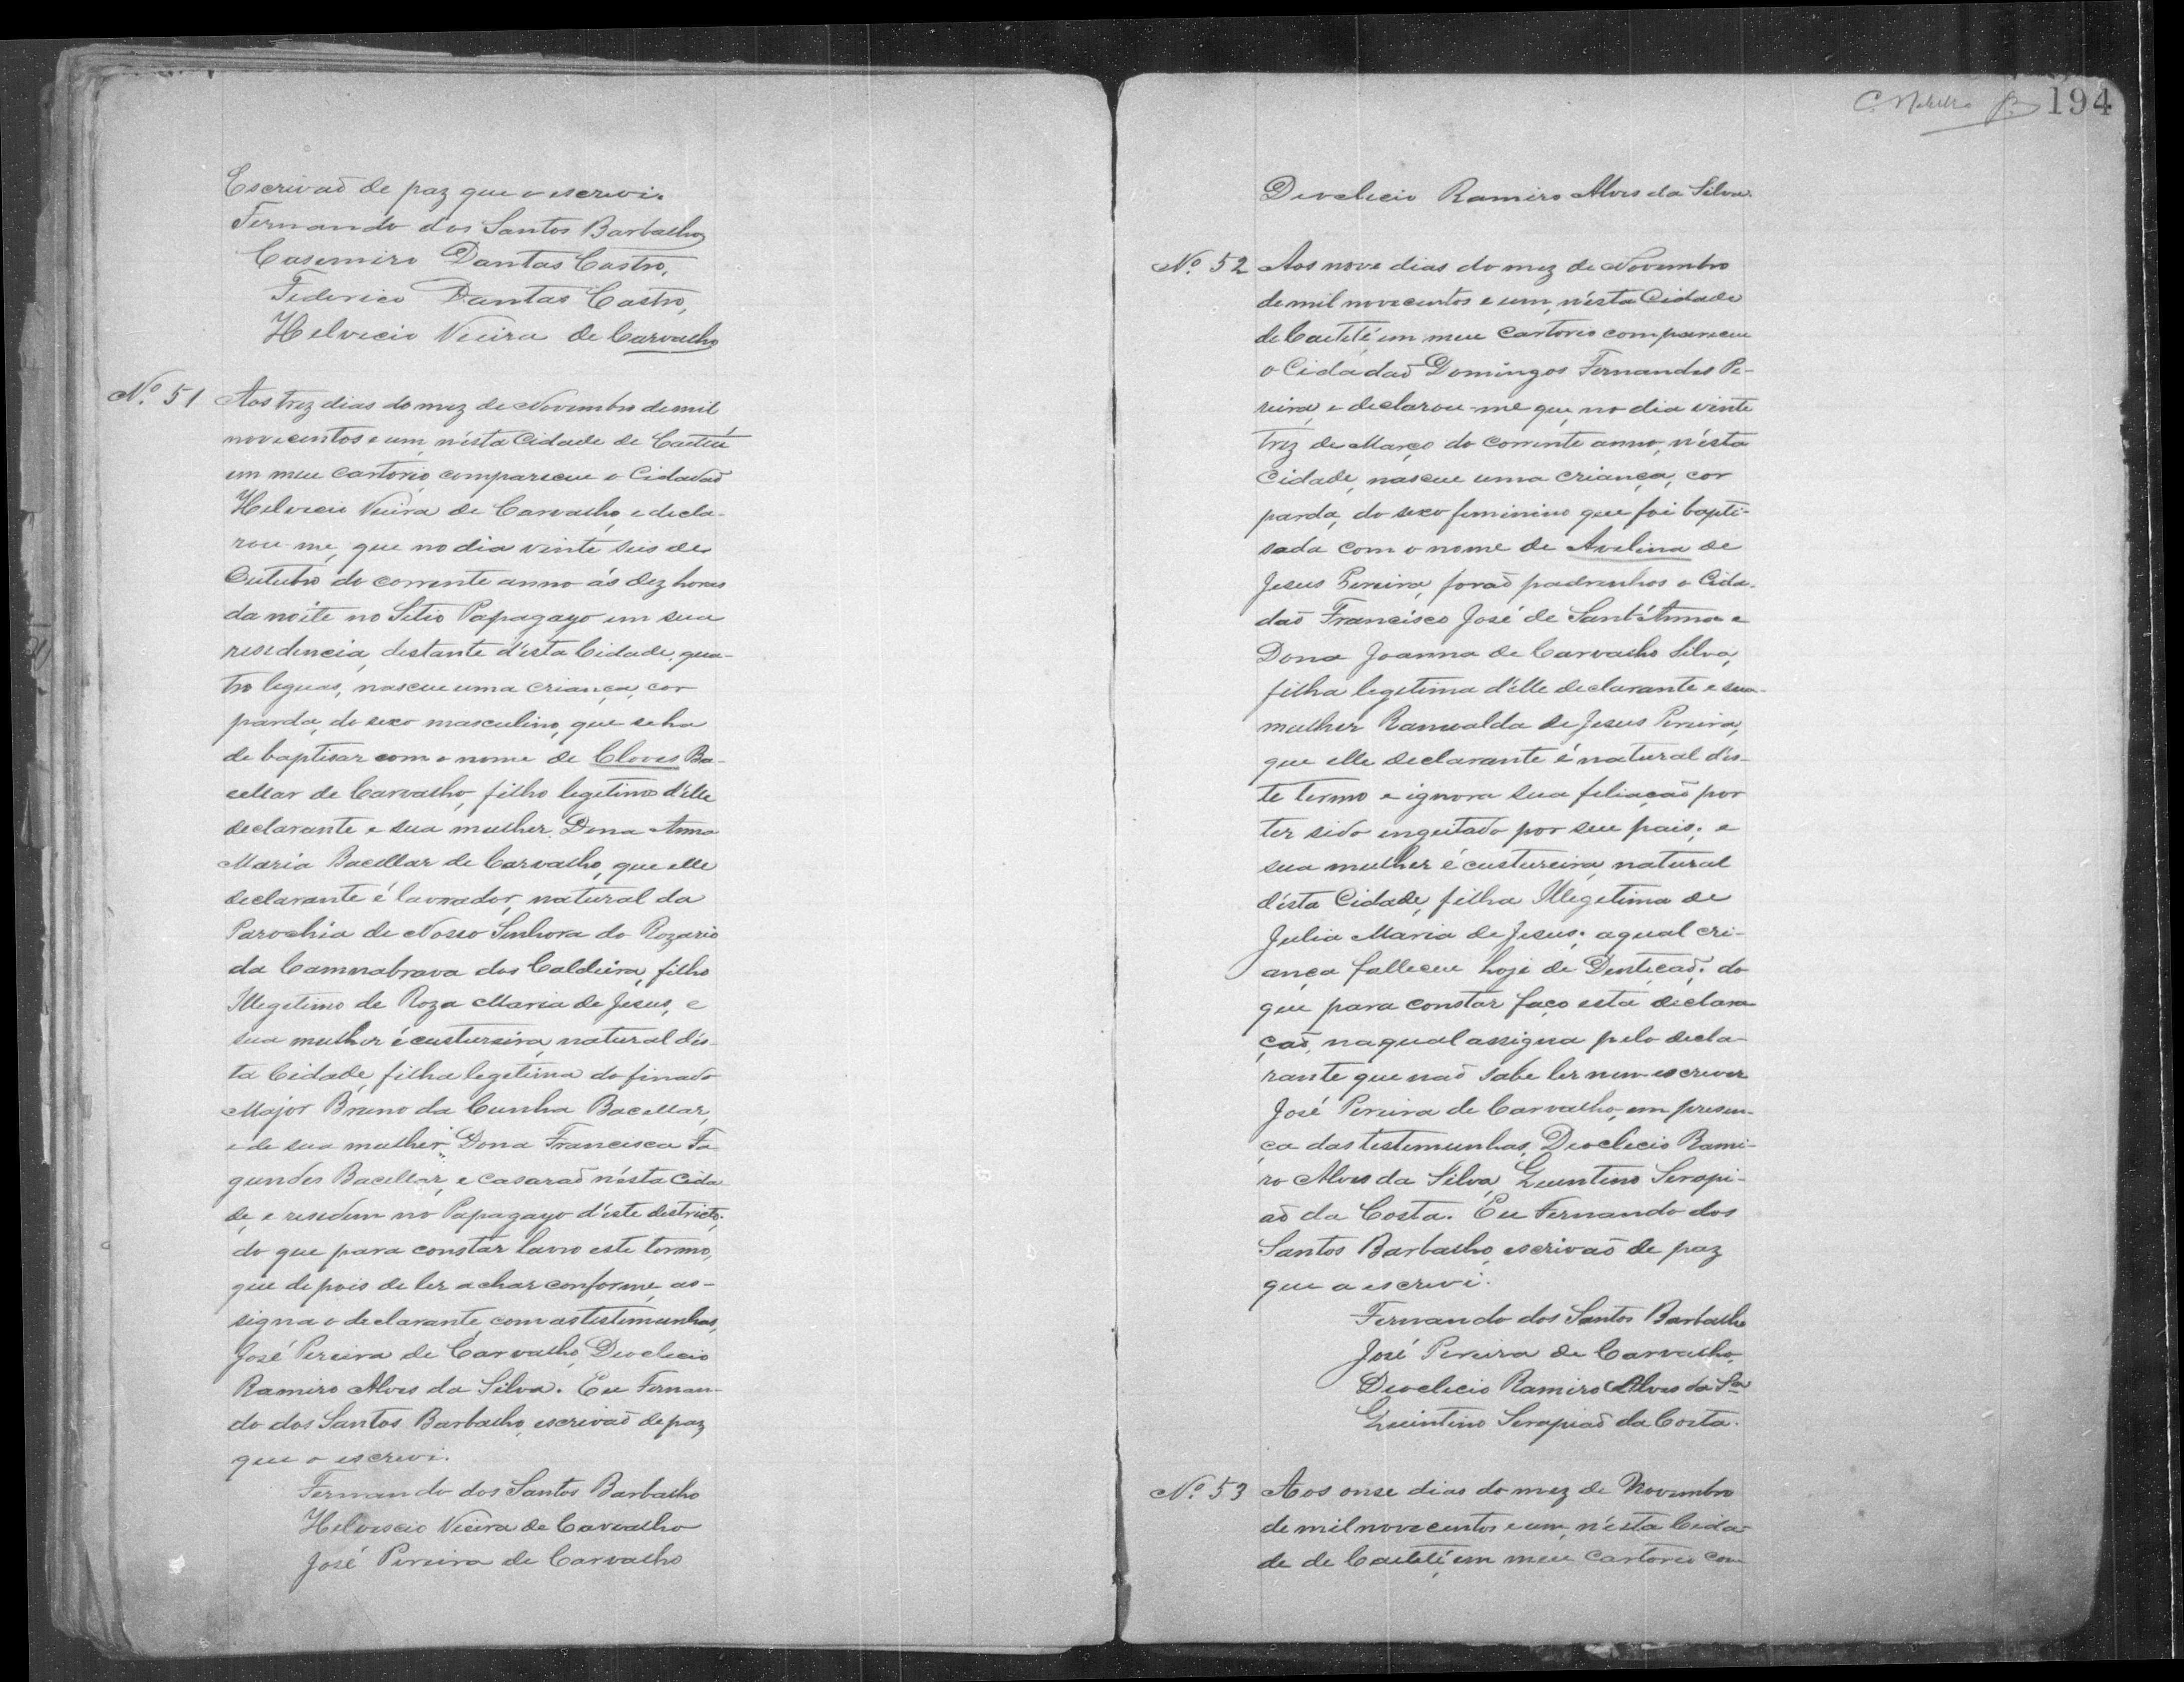 Escrivaõ de paz que o escrevi.
Fernando dos Santos Barbalho
Casemiro Dantas Castro,
Federico Dantas Castro,
Helvecio Vieira de Carvalho
Nº 51 Aos trez dias do mez de Novembro de mil
novecentos e um, n'ésta Cidade de Caeteté
em meu cartorio compareceu o Cidadaõ
Helvecio Vieira de Carvalho, e decla-
rou-me, que no dia vinte seis de
Outubro do corrente anno ás dez horas
da noite no Sitio Papagayo em sua
residencia, destante d'ésta Cidade, qua-
tro leguas, nasceu uma criança, cor
parda, do sexo masculino, que se ha
de baptisar com o nome de Cloves Ba-
cellar de Carvalho, filho legitimo d'élle
declarante e sua mulher Dona Anna
Maria Bacellar de Carvalho, que elle
declarante é lavrador, natural da
Parochia de Nossa Senhora do Rozario
da Cannabrava dos Caldeira, filho
Illegitimo de Roza Maria de Jesus, e
sua mulher é custureira, natural dés-
ta Cidade, filha legitima do finado
Major Bruno da Cunha Bacellar,
e de sua mulher Dona Francisca Fa
gundes Bacellar, e casaraõ n'ésta Cida
de, e residem no Papagayo d'éste districto.
do que para constar lavro este termo,
que depois de ler achar conforme, as-
signa o declarante com as testemunhas,
José Pereira de Carvalho, Deoclecio
Ramiro Alves da Silva. Eu Fernan-
do dos Santos Barbalho, escrivaõ de paz
que o escrevi.
Fernando dos Santos Barbalho
Helvecio Vieira de Carvalho
José Pereira de Carvalho
194
Deoclecio Ramiro Alves da Silva.
Nº 52 Aos nove dias do mez de Novembro
de mil novecentos e um, n'ésta Cidade
de Caeteté em meu Cartorio compareceu
o Cidadaõ Domingos Fernandes Pe-
reira, e declarou-me que, no dia vinte
trez de Março do corrente anno, n'ésta
Cidade, nasceu uma criança, cor
parda, do sexo feminino que foi bapti-
sada com o nome de Avelina de
Jesus Pereira, foraõ padrinhos o Cida-
daõ Francisco José de Sant'Anna e
Dona Joanna de Carvalho Silva,
filha legitima d'élle declarante e sua
mulher Ramualda de Jesus Pereira,
que elle declarante é natural dés-
te termo e ignora sua filiaçaõ por
ter sido engeitado por seu pais; e
sua mulher é custureira, natural
d'ésta Cidade, filha Illegitima de
Julia Maria de Jesus; a qual cri-
ança falleceu hoje de Dentiçaõ. do
que para constar faço esta declara
çaõ, na qual assigna pelo decla-
rante que naõ sabe ler nem escrever
José Pereira de Carvalho, em presen-
ça das testemunhas, Deoclecio Rami-
ro Alves da Silva, Quintino Serapi-
aõ da Costa. Eu Fernando dos
Santos Barbalho, escrivaõ de paz
que a escrevi.
Fernando dos Santos Barbalho
José Pereira de Carvalho,
Deoclecio Ramiro Alves da Sª
Quintino Serapiaõ da Costa.
Nº 53 Aos onse dias do mez de Novembro
de mil novecentos e um, n'ésta Cida-
de de Caeteté, em meu cartorio com